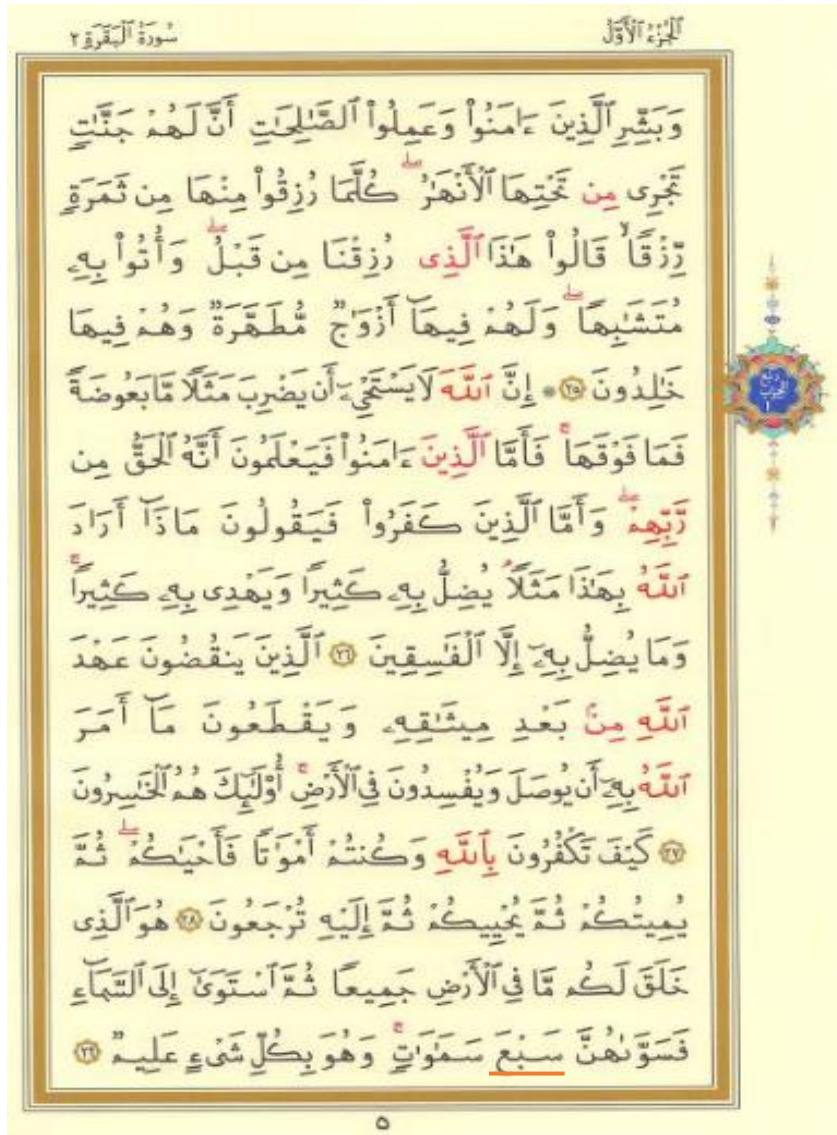 الجُزْءُ الأَوَّلُ
سُورَةُ ٱلْبَقَرَةِ ٢
وَبَشِّرِ ٱلَّذِينَ ءَامَنُوا۟ وَعَمِلُوا۟ ٱلصَّٰلِحَٰتِ أَنَّ لَهُمْ جَنَّٰتٍ
تَجْرِى مِن تَحْتِهَا ٱلْأَنْهَٰرُ ۖ كُلَّمَا رُزِقُوا۟ مِنْهَا مِن ثَمَرَةٍ
رِّزْقًا ۙ قَالُوا۟ هَٰذَا ٱلَّذِى رُزِقْنَا مِن قَبْلُ ۖ وَأُتُوا۟ بِهِۦ
مُتَشَٰبِهًا ۖ وَلَهُمْ فِيهَآ أَزْوَٰجٌ مُّطَهَّرَةٌ وَهُمْ فِيهَا
خَٰلِدُونَ ٢٥ ۞ إِنَّ ٱللَّهَ لَا يَسْتَحْىِۦٓ أَن يَضْرِبَ مَثَلًا مَّا بَعُوضَةً
فَمَا فَوْقَهَا ۚ فَأَمَّا ٱلَّذِينَ ءَامَنُوا۟ فَيَعْلَمُونَ أَنَّهُ ٱلْحَقُّ مِن
رَّبِّهِمْ ۖ وَأَمَّا ٱلَّذِينَ كَفَرُوا۟ فَيَقُولُونَ مَاذَآ أَرَادَ
ٱللَّهُ بِهَٰذَا مَثَلًا ۘ يُضِلُّ بِهِۦ كَثِيرًا وَيَهْدِى بِهِۦ كَثِيرًا ۚ
وَمَا يُضِلُّ بِهِۦٓ إِلَّا ٱلْفَٰسِقِينَ ٢٦ ٱلَّذِينَ يَنقُضُونَ عَهْدَ
ٱللَّهِ مِنۢ بَعْدِ مِيثَٰقِهِۦ وَيَقْطَعُونَ مَآ أَمَرَ
ٱللَّهُ بِهِۦٓ أَن يُوصَلَ وَيُفْسِدُونَ فِى ٱلْأَرْضِ ۚ أُو۟لَٰٓئِكَ هُمُ ٱلْخَٰسِرُونَ
٢٧ كَيْفَ تَكْفُرُونَ بِٱللَّهِ وَكُنتُمْ أَمْوَٰتًا فَأَحْيَٰكُمْ ۖ ثُمَّ
يُمِيتُكُمْ ثُمَّ يُحْيِيكُمْ ثُمَّ إِلَيْهِ تُرْجَعُونَ ٢٨ هُوَ ٱلَّذِى
خَلَقَ لَكُم مَّا فِى ٱلْأَرْضِ جَمِيعًا ثُمَّ ٱسْتَوَىٰٓ إِلَى ٱلسَّمَآءِ
فَسَوَّىٰهُنَّ سَبْعَ سَمَٰوَٰتٍ ۚ وَهُوَ بِكُلِّ شَىْءٍ عَلِيمٌ ٢٩
ربع
الحزب
١
٥